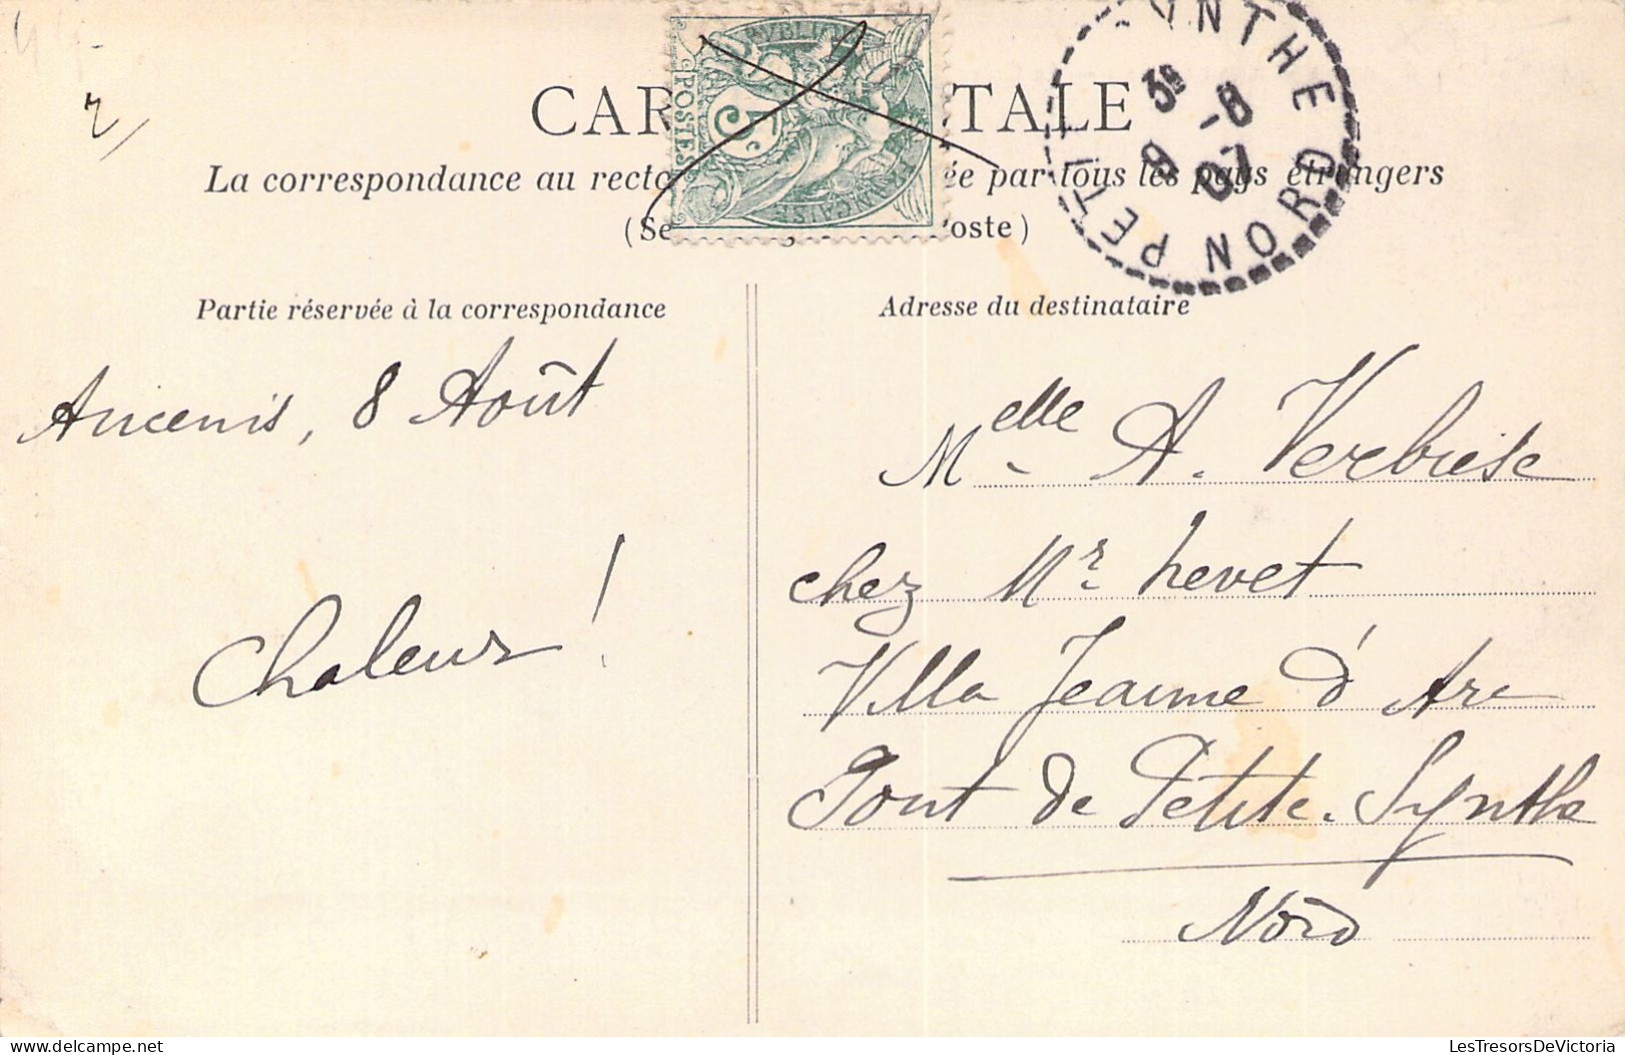 CAR TALE
La correspondance au recto ée par tous les pays étrangers
(Se oste)
RÉPUBLIQUE
FRANÇAISE
POSTES
5 c
PETITE SYNTHE
NORD
3ᴱ
8 -8
07
Partie réservée à la correspondance
Adresse du destinataire
Ancenis, 8 Août
Chaleur !
Melle A. Verbièse
chez Mr hevet
Villa Jeanne d'Arc
Pont de Petite-Synthe
Nord
LesTresorsDeVictoria.com
LesTresorsDeVictoria